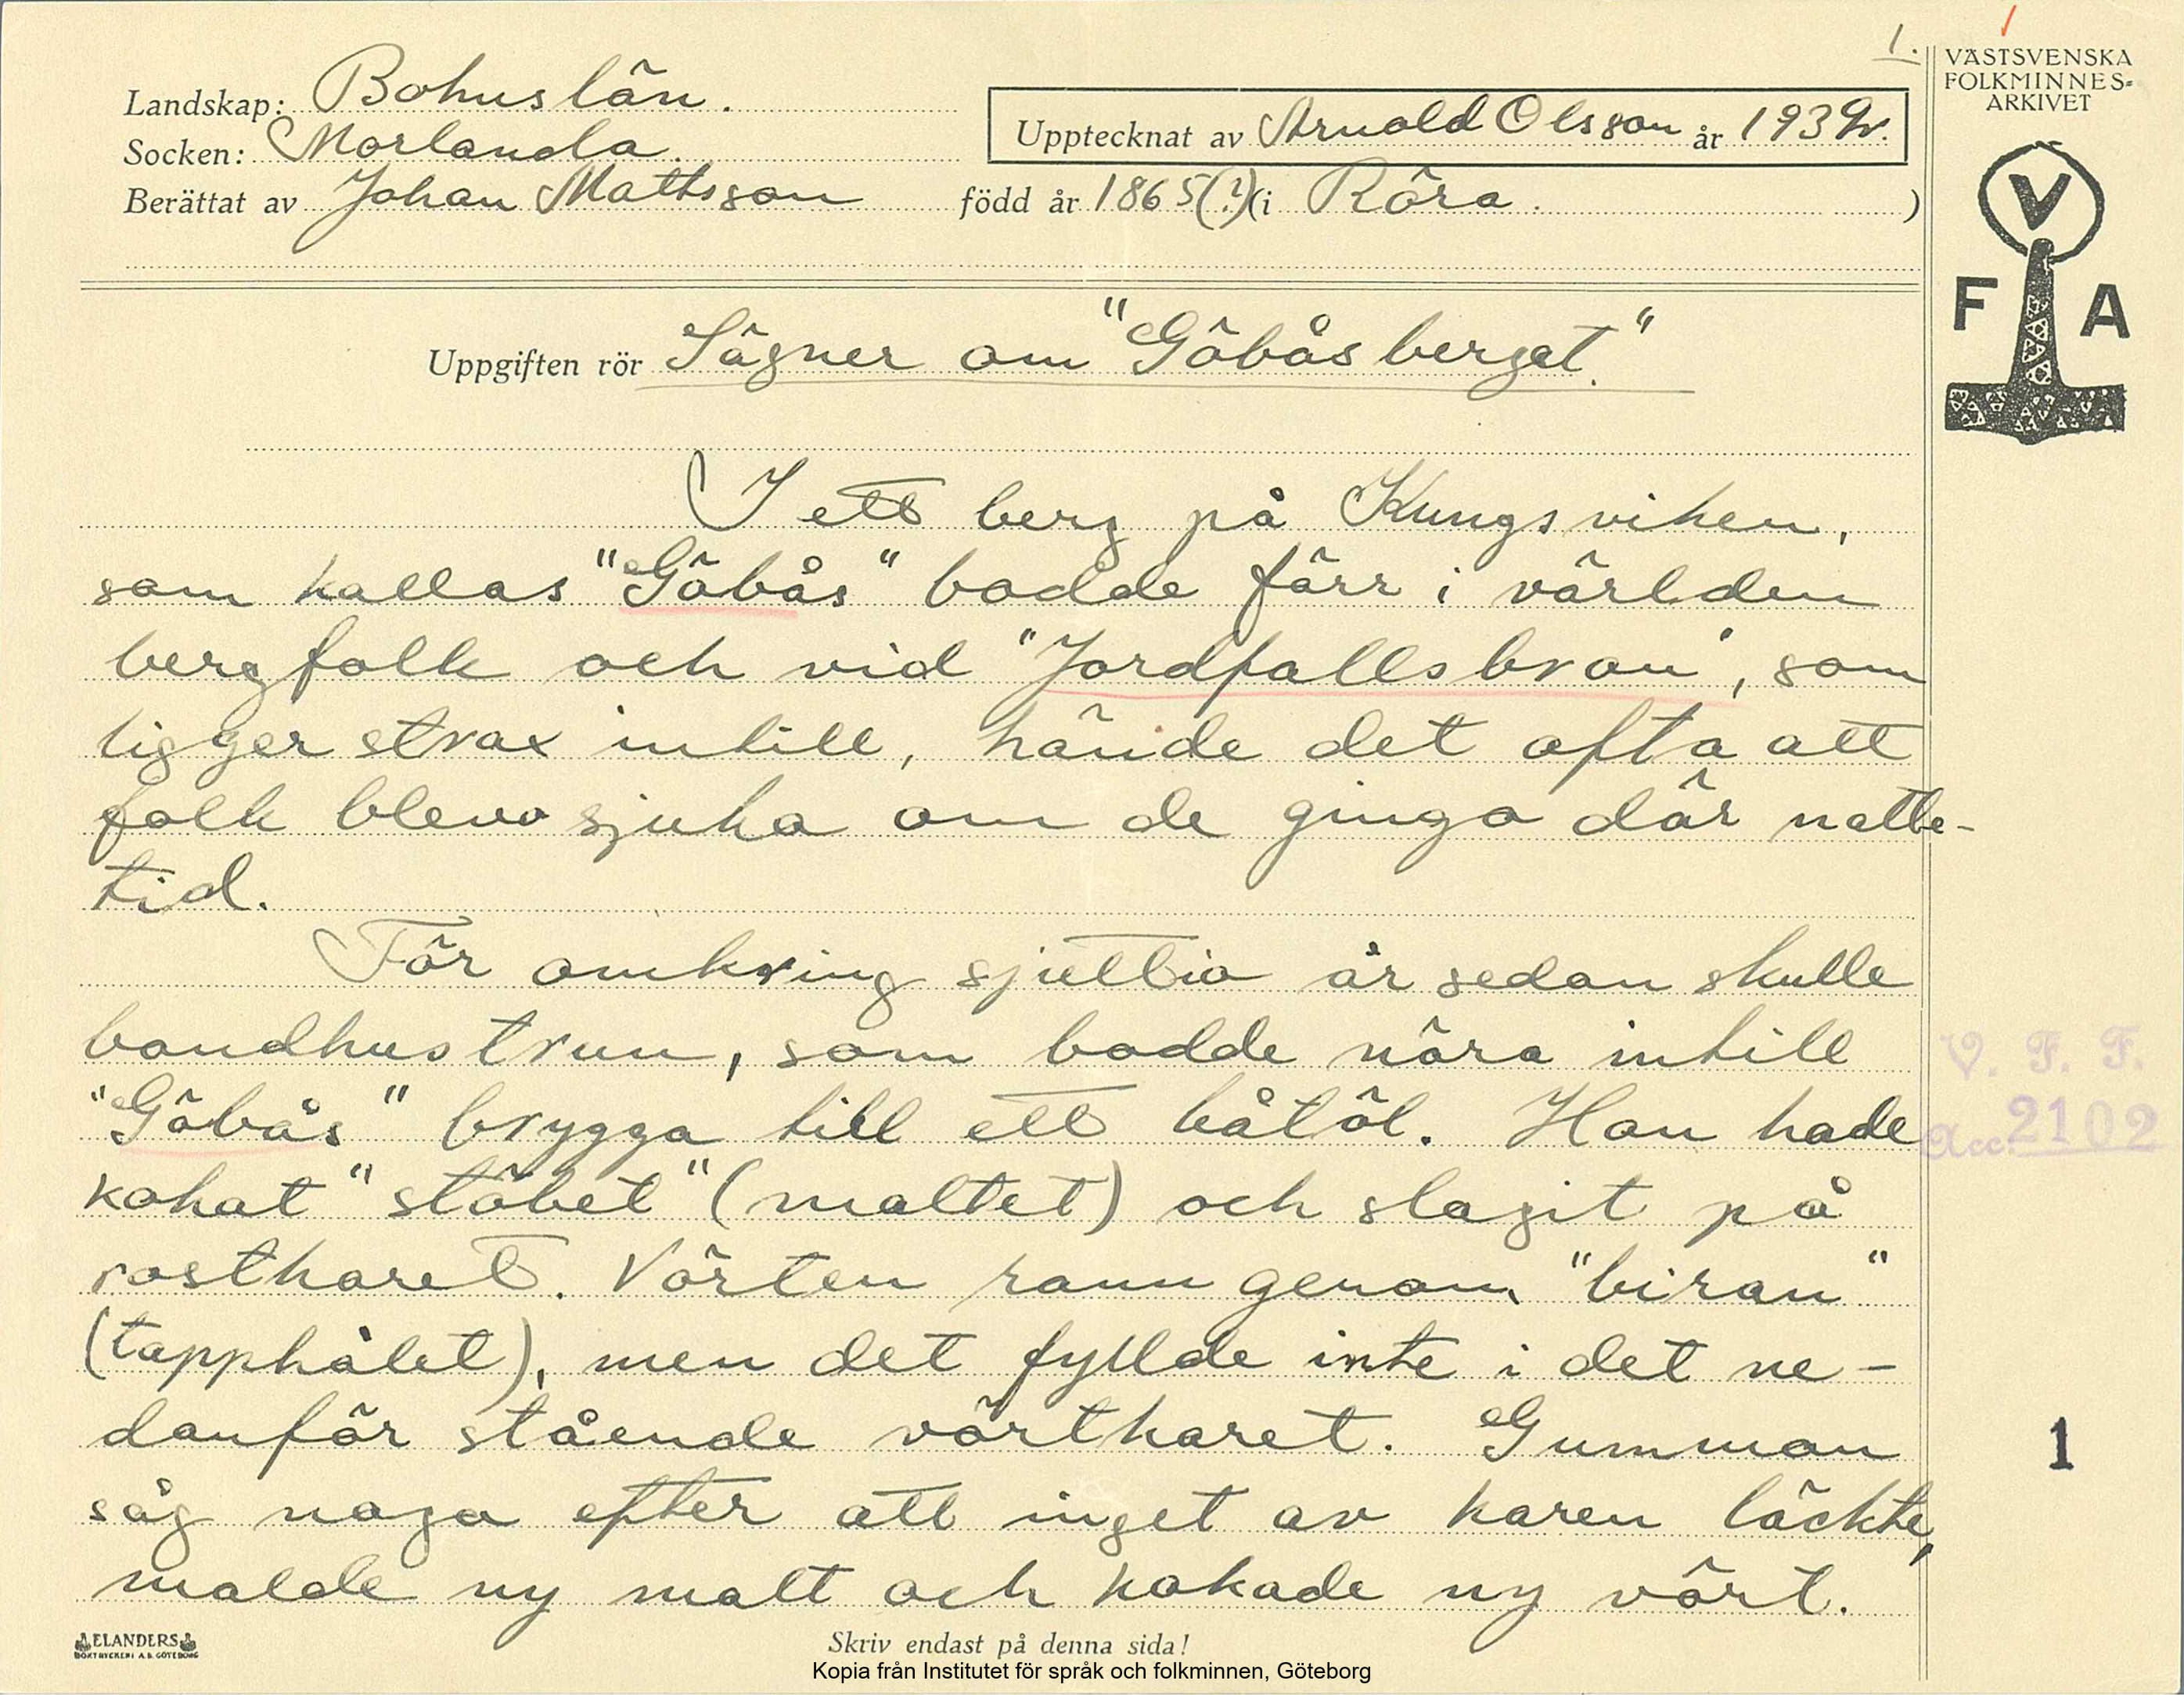 1.
VÄSTSVENSKA
FOLKMINNES=
ARKIVET
Landskap: Bohuslän.
Upptecknat av Arnold Olsson år 1932.
Socken: Morlanda.
Berättat av Johan Mattsson född år 1865(?) (i Röra.)
V
F A
Uppgiften rör Sägner om "Göbåsberget."
I ett berg på Kungsviken,
som kallas "Göbås" bodde förr i världen
bergfolk och vid "Jordfallsbron", som
ligger strax intill, hände det ofta att
folk blevo sjuka om de gingo där natte-
tid.
För omkring sjuttio år sedan skulle
bondhustrun, som bodde nära intill
"Göbås" brygga till ett båtöl. Hon hade
kokat "stöbet" (maltet) och slagit på
rostkaret. Vörten rann genom "biran"
(tapphålet), men det fyllde inte i det ne-
danför stående vörtkaret. Gumman
såg noga efter att inget av karen läckte,
malde ny malt och kokade ny vört.
V. F. F.
Acc. 2102
1
ELANDERS
BOKTRYCKERI A.B. GÖTEBORG
Skriv endast på denna sida!
Kopia från Institutet för språk och folkminnen, Göteborg